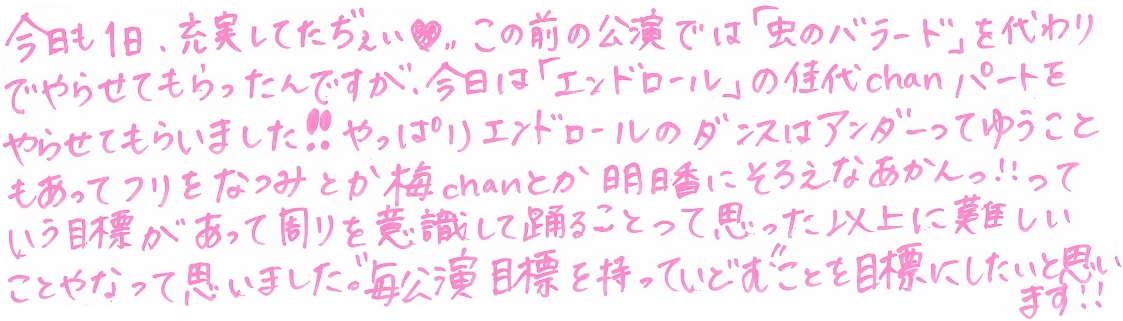 今日も1日、充実してたぢぇぃ♥,, この前の公演では「虫のバラード」を代わり
でやらせてもらったんですが、今日は「エンドロール」の佳代chanパートを
やらせてもらいました!! やっぱりエンドロールのダンスはアンダーってゆうこと
もあってフリをなつみとか梅chanとか明日香にそろえなあかんっ!!って
いう目標があって周りを意識して踊ることって思った以上に難しい
ことやなって思いました。毎公演目標を持っていどむことを目標にしたいと思い
ます!!